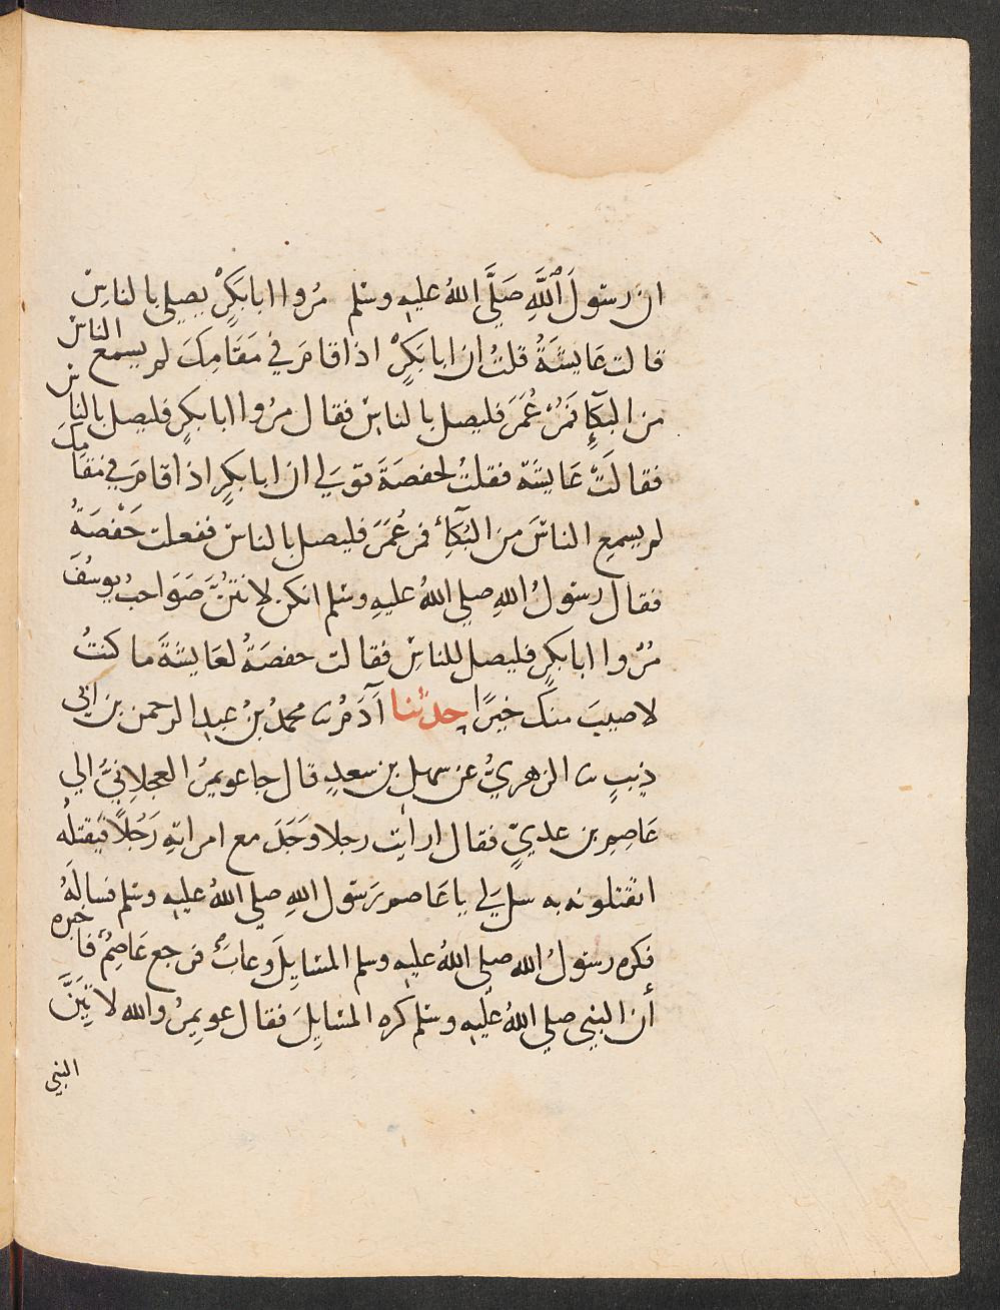 ان رسُولَ ٱللَّهِ صَلَّى اللهُ عليهِ وسَلم مُروا ابابَكرٍ يصلي بالناسِ
قالت عَايشَةُ قلتُ ان ابابَكرٍ اذا قامَ في مَقَامِكَ لم يسمع الناسَ
من البُكَآءِ فَمُرْ عُمَرَ فليصل بالناسِ فقال مرُوا ابابكرٍ فليصل بالناس
فقالَتْ عَايشَة فقلتُ لحفصَةَ قوَلي ان ابابكرٍ اذا قامَ في مقامِكَ
لم يسمِعِ الناسَ من البُكآءِ فمر عُمَرَ فليصل بالناسَ ففعلت حَفْصَةُ
فقال رسُولُ اللهِ صلي اللهُ عليهِ وسَلم انكن لانتُنَّ صَوَاحبُ يوسُفَ
مُرُوا ابابكرٍ فليصل للناسِ فقالت حفصَةُ لعَايشَةَ ما كنتُ
لاصيبَ منك خيرًا حدثنا آدَمُ ثنا محمدُ بنُ عبدِ الرحمن بن ابي
ذيبٍ ثنا الزهريُّ عن سهل بن سعدٍ قال جا عويمرُ العجلانيُّ الي
عَاصِمِ بن عديٍّ فقال ارايت رجلا وَجَدَ مع امراتِهِ رَجُلًا فيَقتلهُ
اتقتلونه به سل لي يا عَاصم رَسُول اللهِ صلي اللهُ عليهِ وسَلم فسالهُ
فكره رسُولُ الله صلي اللهُ عليهِ وسلم المسَايلَ وعابَ فرجع عَاصِمٌ فاخبره
أن النبي صلي اللهُ عليهِ وسَلم كره المسَايلَ فقال عويمرُ والله لاتِيَنَّ
النبي